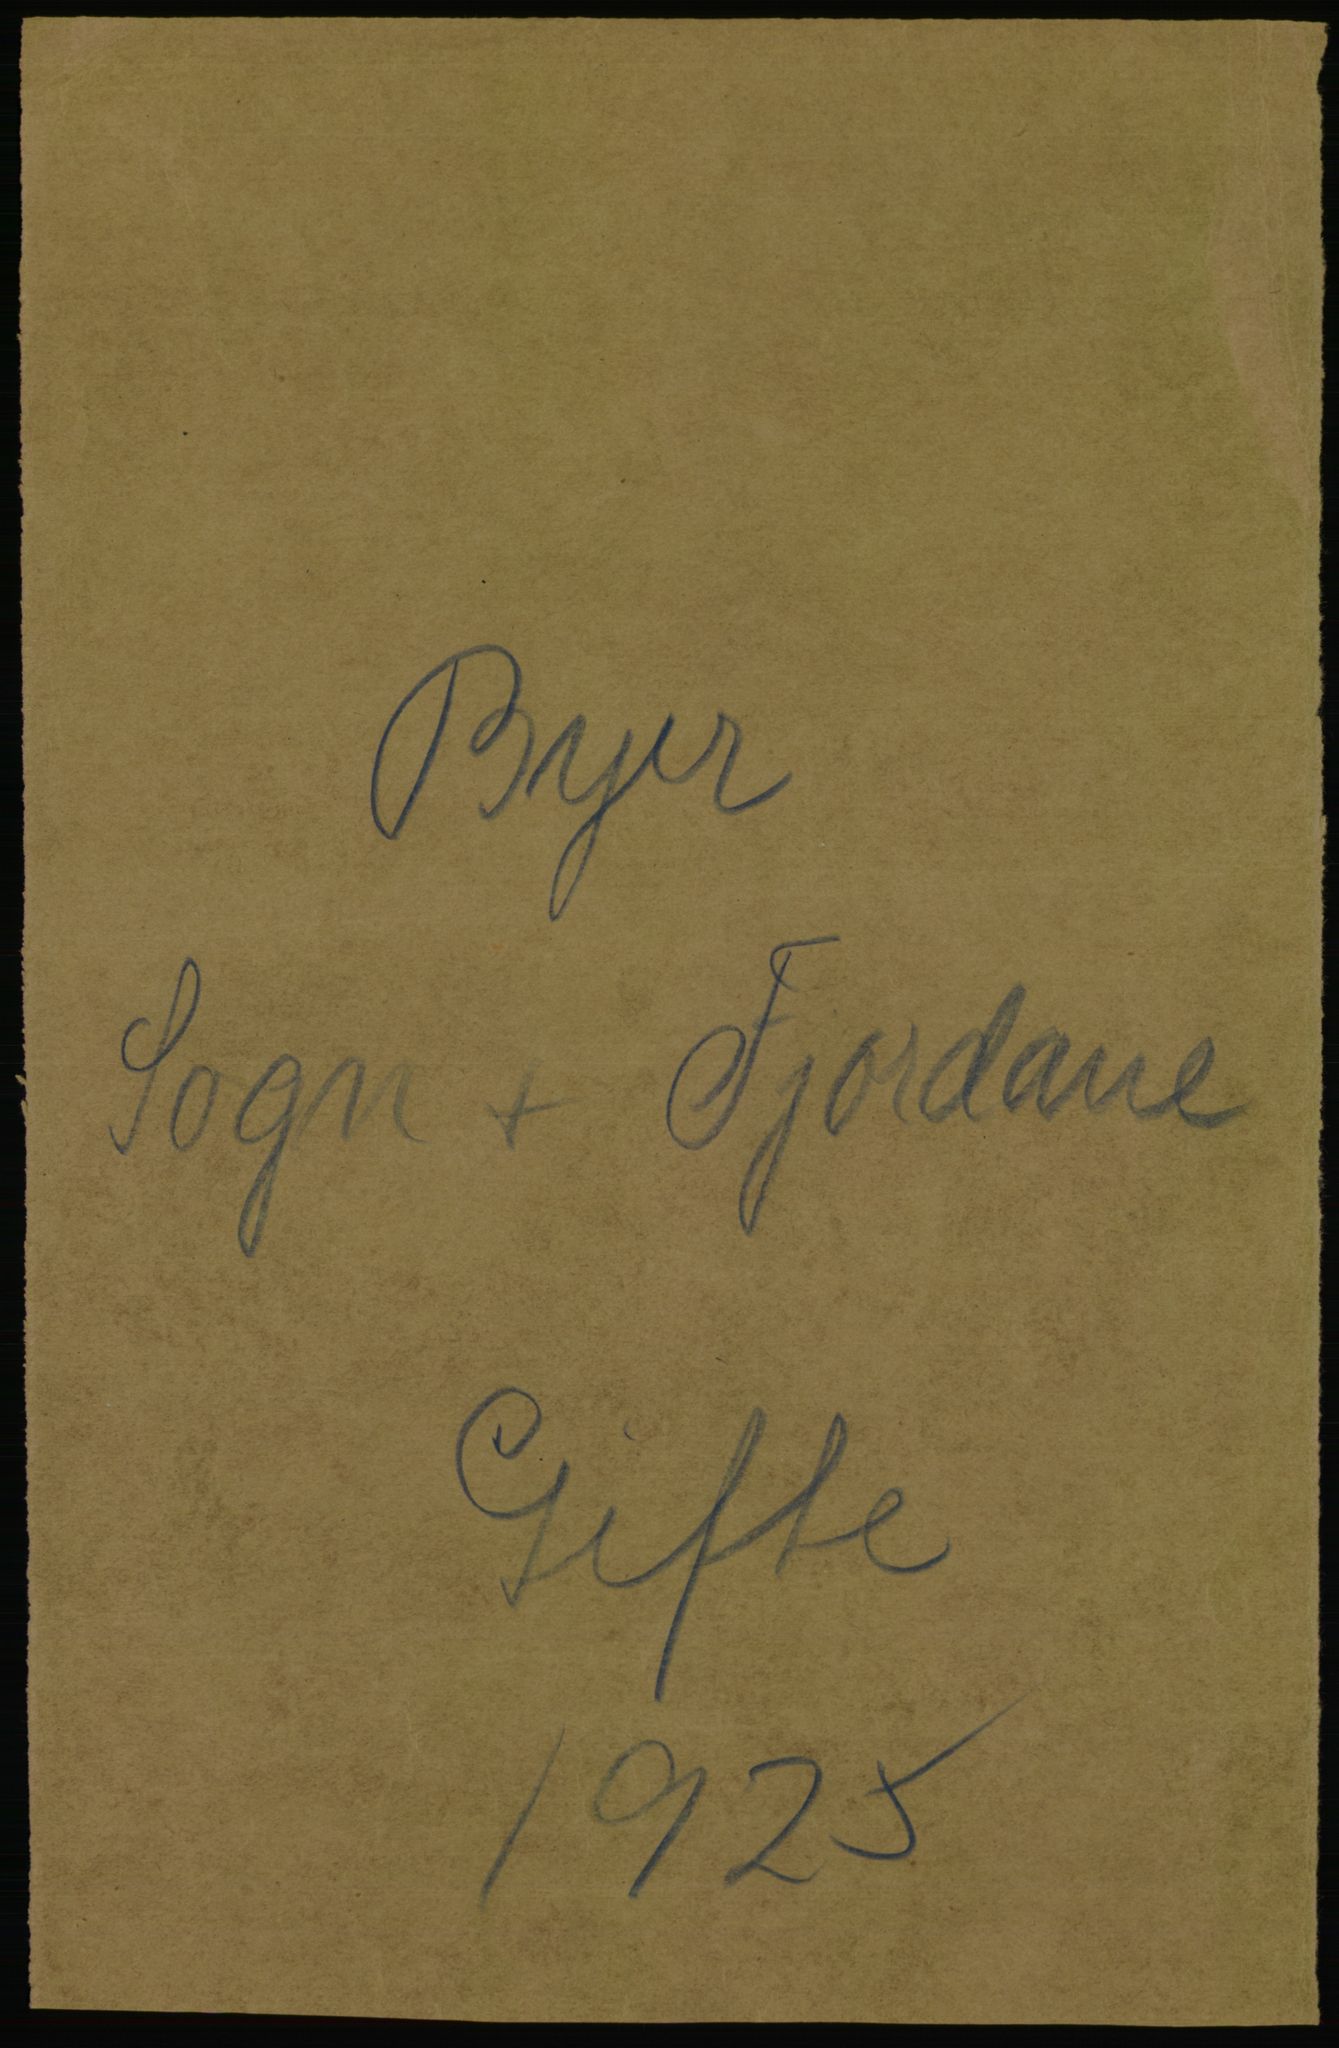 Byer
Sogn + Fjordane
Gifte
1925